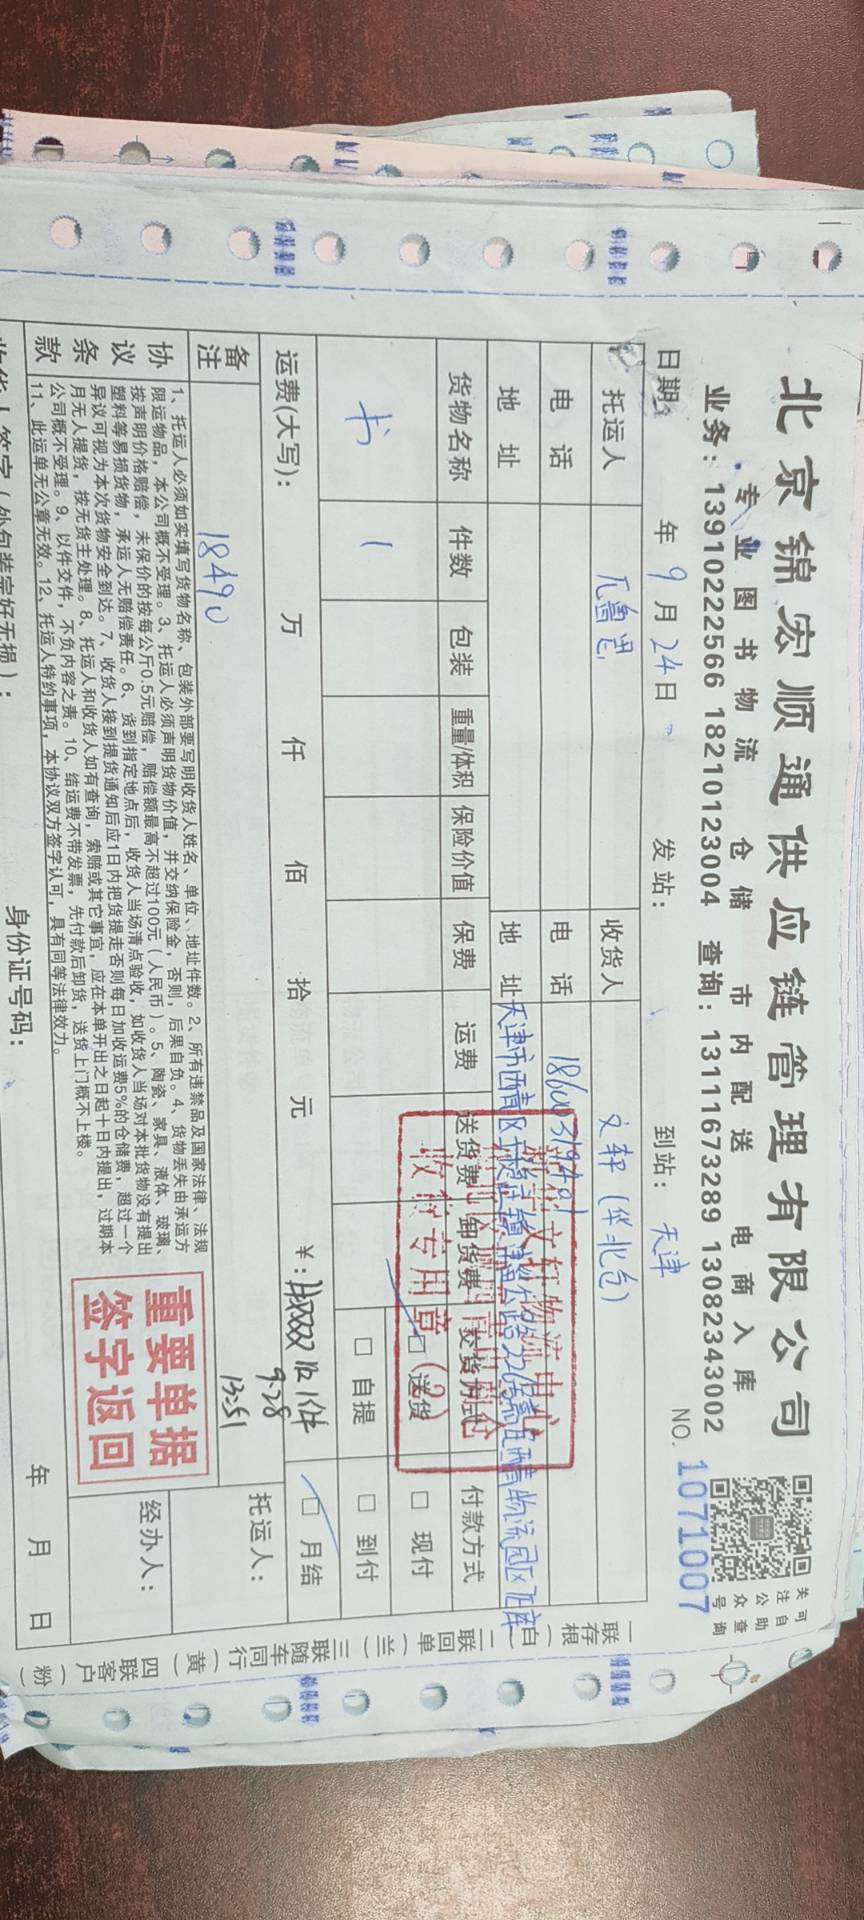 北京锦宏顺通供应链管理有限公司
专业图书物流 仓储 市内配送 电商入库
业务：13910222566 18210123004 查询：13111673289 13082343002
关注公众号
可自助查询
日期： 年 9 月 24 日 发站： 到站：天津 NO. 1071007
托运人 收货人 文轩(华北仓)
电话 电话
地址 地址 天津市西青区
货物名称 件数 包装 重量/体积 保险价值 保费 运费 送货费 卸货费 交货方式 付款方式
书 1 □送货 □现付
□自提 □到付
运费(大写)： 万 仟 佰 拾 元 ¥： 1件 □月结
9.28
13:51
备注 18490 托运人：
协议条款
1、托运人必须如实填写货物名称、包装外部要写明收货人姓名、单位、地址件数。2、所有违禁品及国家法律、法规
限运物品，本公司概不受理。3、托运人必须声明货物价值，并交纳保险金，否则，后果自负。4、货物丢失由承运方
按声明价格赔偿，未保价的按每公斤0.5元赔偿，赔偿额最高不超过100元（人民币）。5、陶瓷、家具、液体、玻璃、
塑料等易损货物，承运人无赔偿责任。6、货到指定地点后，收货人当场清点验收，如收货人当场对本批货物没有提出
异议可视为本次货物安全到达。7、收货人接到提货通知后应1日内把货提走否则每日加收运费5%的仓储费，超过一个
月无人提货，按无货主处理。8、托运人和收货人如有查询，索赔或其它事宜，应在本单开出之日起十日内提出，过期本
公司概不受理。9、以件交件，不负内容之责。10、结运费不带发票，先付款后卸货，送货上门概不上楼。
11、此运单无公章无效。12、托运人特约事项，本协议双方签字认可，具有同等法律效力。
经办人：
重要单据
签字返回
收货专用章(2)
收货人签字（外包装完好无损）： 身份证号码： 年 月 日
一联存根（白） 二联回单（兰） 三联随车同行（黄） 四联客户（粉）